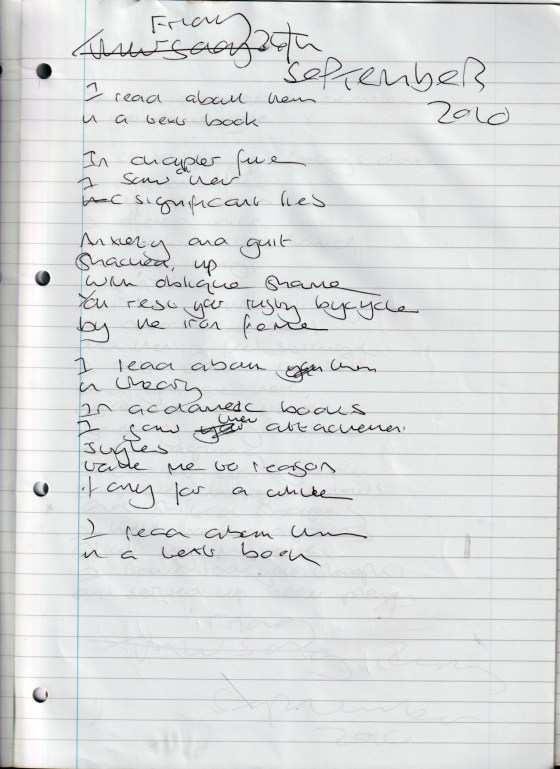 Friday
Thursday 24th
September
2010
I read about them
in a text book
In chapter five
I saw their
significant lies
Anxiety and guilt
Shacked up
with oblique shame
You rest your rusty bycycle
by the iron fence
I read about them
in theory
In acdameic books
I saw their attachment
styles
the me to reason
if only for a while
I read about them
in a text book